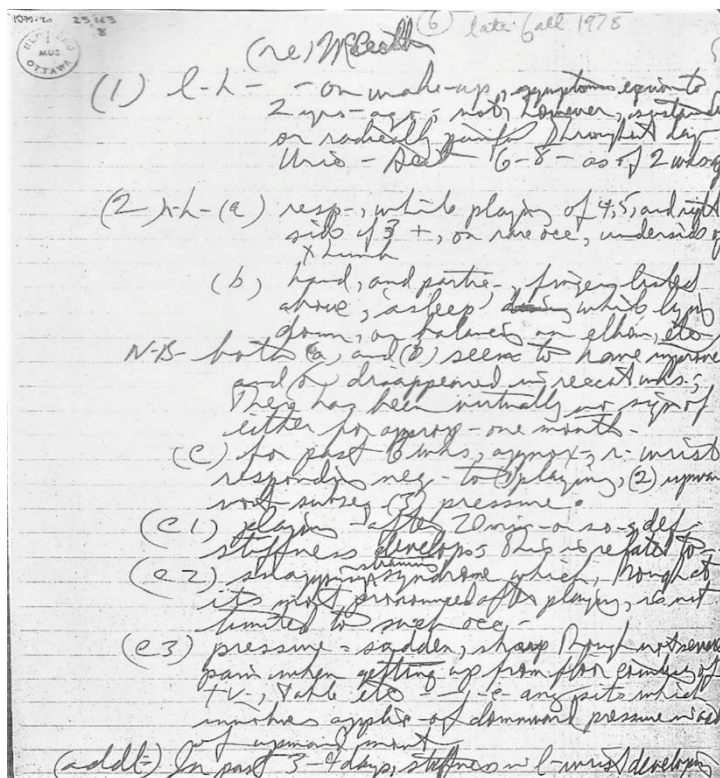 1979-20
(6) late fall 1978
MUS
OTTAWA
(re)
(1) l-h- - on wake-up, symptoms equiv to
2 yrs-ago-; not, however, sustained
or radically painful throughout day-
6-8- as of 2 wks
(2) r-h- (a) resp-, while playing of 4,5, and right
side of 3 +, on rare occ, underside of
thumb
(b) hand, and partic-, fingers listed
above, 'asleep' while lying
down, or balanced on elbow, etc-
N-B- both (a) and (b) seem to have improved
and/or disappeared in recent wks-;
There has been virtually no sign of
either for approx- one month-
(c) for past 6 wks, approx-, r-wrist
responding neg- to (1) playing, (2) upward
(3) pressure.
(c1) playing - after 20 min- or so- def-
stiffness develops; this is related to-
(c2) snapping syndrome which, though at
its most pronounced after playing, is not
limited to such occ-
(c3) pressure - sudden, sharp though not severe
pain when getting up from floor
T.V-, table etc - i-e- any sit- which
involves applic- of downward pressure
of upward
(addt-) In past 3-4 days, stiffness in l-wrist developing